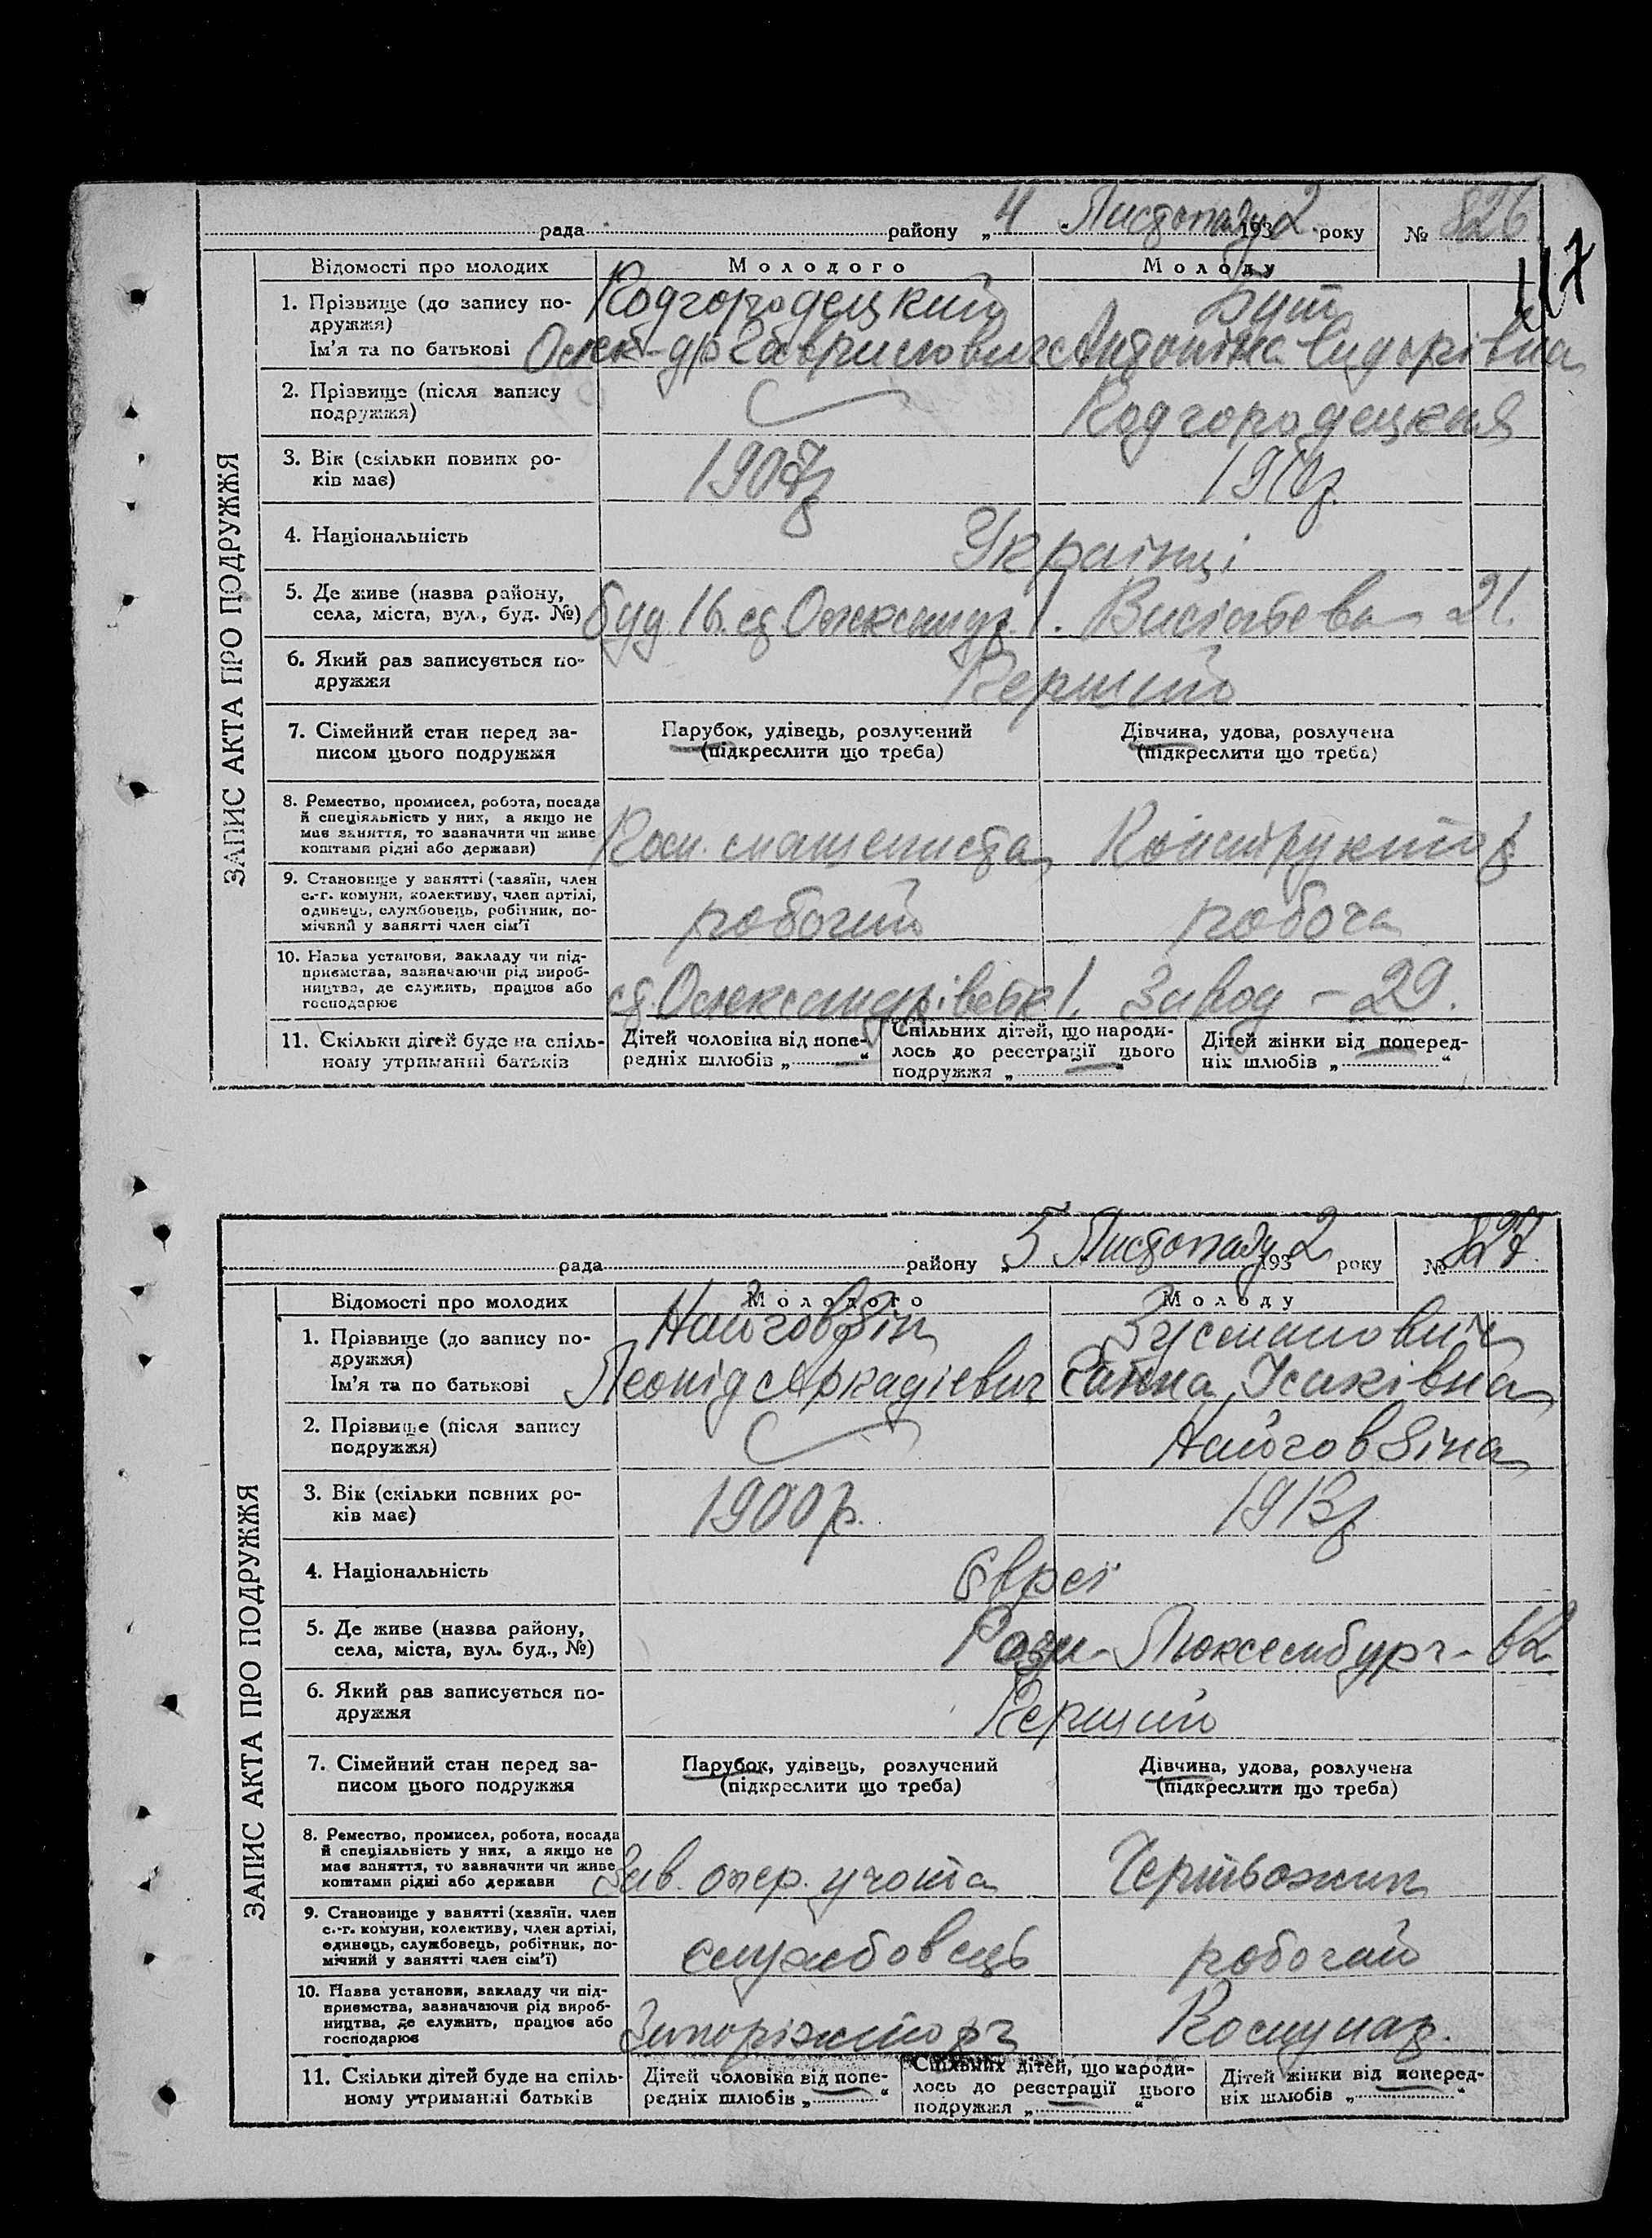 рада района „4 Листопаду 1932 року № 826
117
ЗАПИС АКТА ПРО ПОДРУЖЖЯ
Відомості про молодих Молодого Молоду
1. Прізвище (до запису подружжя) Подгородецкий Бут
Ім'я та по батькові Олек-др Гаврилович Антоніна Сидорівна
2. Прізвище (після запису подружжя) Подгородецкая
3. Вік (скільки повних років має) 1910р.
4. Національність Українці
5. Де живе (назва району, села, міста, вул., буд. №) буд. 16. ст. Олександр. 1. 21.
6. Який раз записується подружжя Перший
7. Сімейний стан перед записом цього подружжя Парубок, удівець, розлучений (підкреслити що треба) Дівчина, удова, розлучена (підкреслити що треба)
8. Ремество, промисел, робота, посада й спеціяльність у них, а якщо не має заняття, то зазначити чи живе коштами рідні або держави) Пом. машениста Конструктор
9. Становище у занятті (хазяїн, член с.-г. комуни, колективу, член артілі, одинець, службовець, робітник, помічний у занятті член сім'ї робочий робоча
10. Назва установи, закладу чи підприємства, зазначаючи рід виробництва, де служить, працює або господарює Завод – 29.
11. Скільки дітей буде на спільному утриманні батьків Дітей чоловіка від попередніх шлюбів „ “ Спільних дітей, що народилось до реєстрації цього подружжя „ “ Дітей жінки від попередніх шлюбів „ “
рада району „5 Листопаду 1932 року № 827
ЗАПИС АКТА ПРО ПОДРУЖЖЯ
Відомості про молодих Молодого Молоду
1. Прізвище (до запису подружжя) Найговзін Зусманович
Ім'я та по батькові Леонід Аркадіевич Ганна Ісаківна
2. Прізвище (після запису подружжя) Найговзіна
3. Вік (скільки повних років має) 1900 р. 1913р
4. Національність Євреї
5. Де живе (назва району, села, міста, вул. буд., №) Рози-Люксембург-62
6. Який раз записується подружжя Перший
7. Сімейний стан перед записом цього подружжя Парубок, удівець, розлучений (підкреслити що треба) Дівчина, удова, розлучена (підкреслити що треба)
8. Ремество, промисел, робота, посада й спеціяльність у них, а якщо не має заняття, то зазначити чи живе коштами рідні або держави Зав. опер. учота Чертьожник
9. Становище у занятті (хазяїн. член с.-г. комуни, колективу, член артілі, одинець, службовець, робітник, помічний у занятті член сім'ї) службовець робочий
10. Назва установи, закладу чи підприємства, зазначаючи рід виробництва, де служить, працює або господарює Запоріжторг Комунар.
11. Скільки дітей буде на спільному утриманні батьків Дітей чоловіка від попередніх шлюбів „ “ Спільних дітей, що народилось до реєстрації цього подружжя „ “ Дітей жінки від попередніх шлюбів „ “